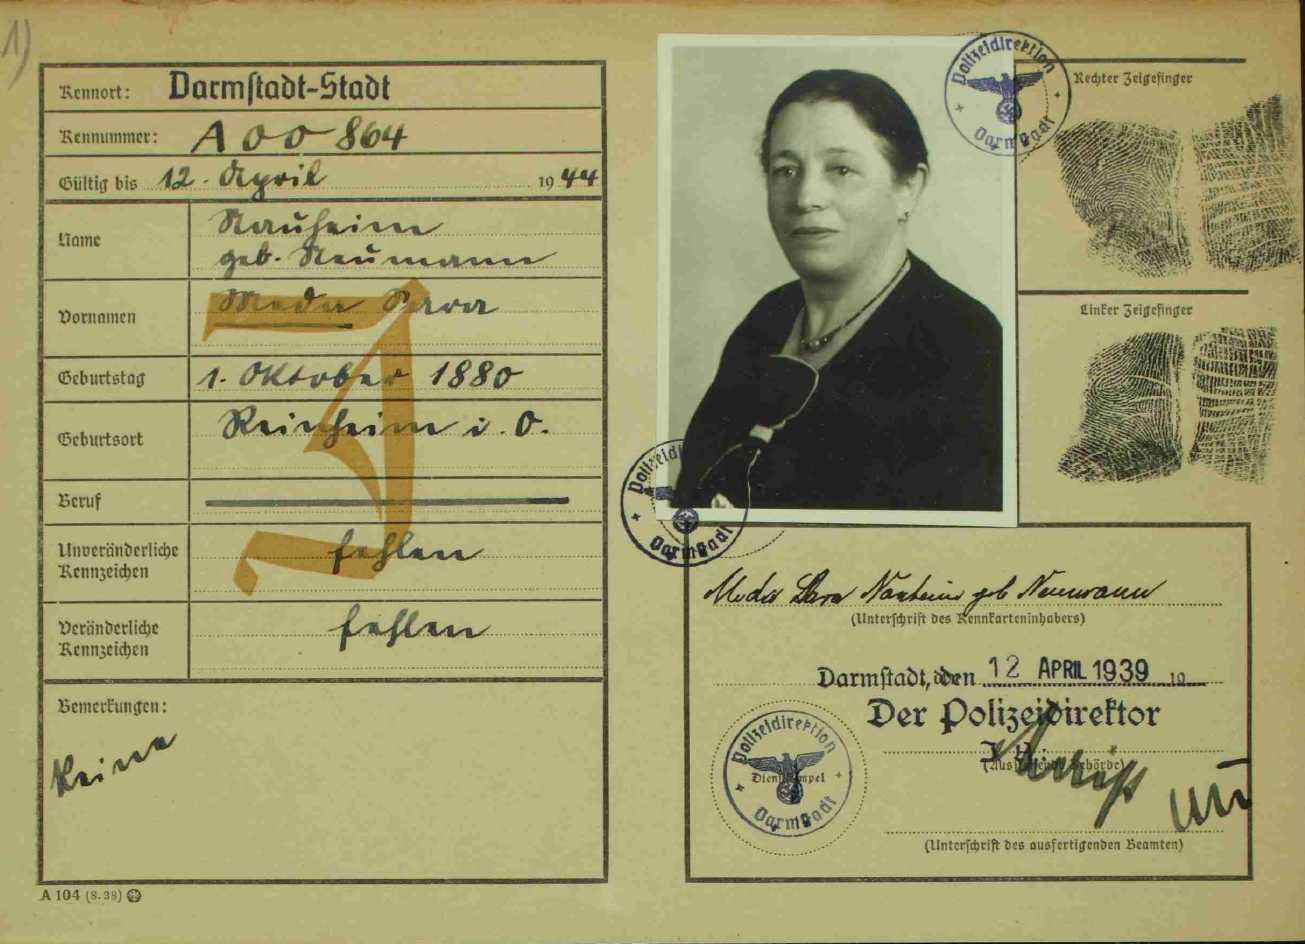 1)
Kennort: Darmstadt-Stadt
Kennummer: A 00 864
Gültig bis 12. April 1944
Name
Nauheim
geb. Neumann
Vornamen
Meda Sara
J
Geburtstag
1. Oktober 1880
Geburtsort
Reinheim i. O.
Beruf
Unveränderliche
Kennzeichen
fehlen
Veränderliche
Kennzeichen
fehlen
Bemerkungen:
Keine
A 104 (8. 38)
Polizeidirektion
Darmstadt
Rechter Zeigefinger
Linker Zeigefinger
Polizeidi
Darmstadt
Meda Sara Nauheim geb Neumann
(Unterschrift des Kennkarteninhabers)
Darmstadt, den 12 APRIL 1939 19
Der Polizeidirektor
(Ausstellende Behörde)
Polizeidirektion
Dienststempel
Darmstadt
(Unterschrift des ausfertigenden Beamten)